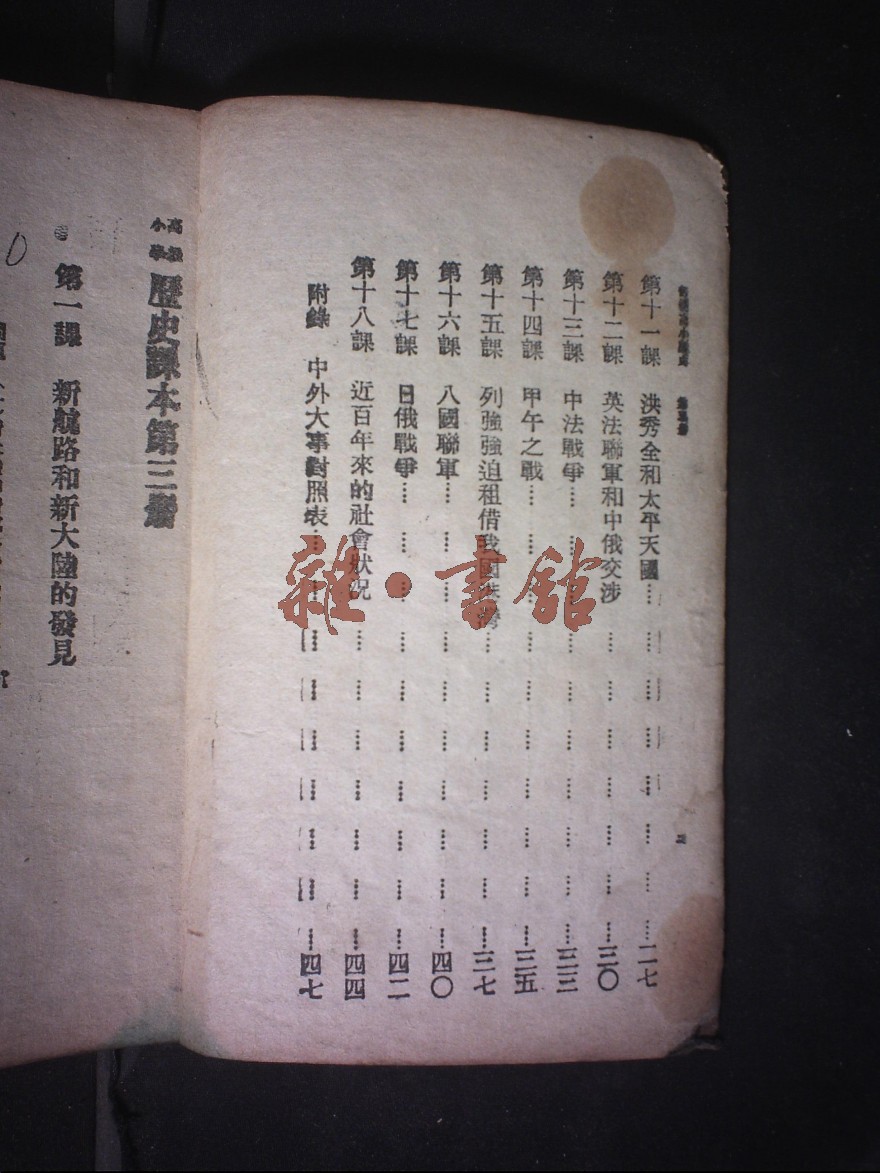 第十一課　洪秀全和太平天國…………………二七
第十二課　英法聯軍和中俄交涉…………………三〇
第十三課　中法戰爭…………………三三
第十四課　甲午之戰…………………三五
第十五課　列強強迫租借我國港灣…………………三七
第十六課　八國聯軍…………………四〇
第十七課　日俄戰爭…………………四二
第十八課　近百年來的社會狀況…………………四四
附錄　中外大事對照表…………………四七
高級小學　歷史課本第三册
第一課　新航路和新大陸的發見
雜·書館